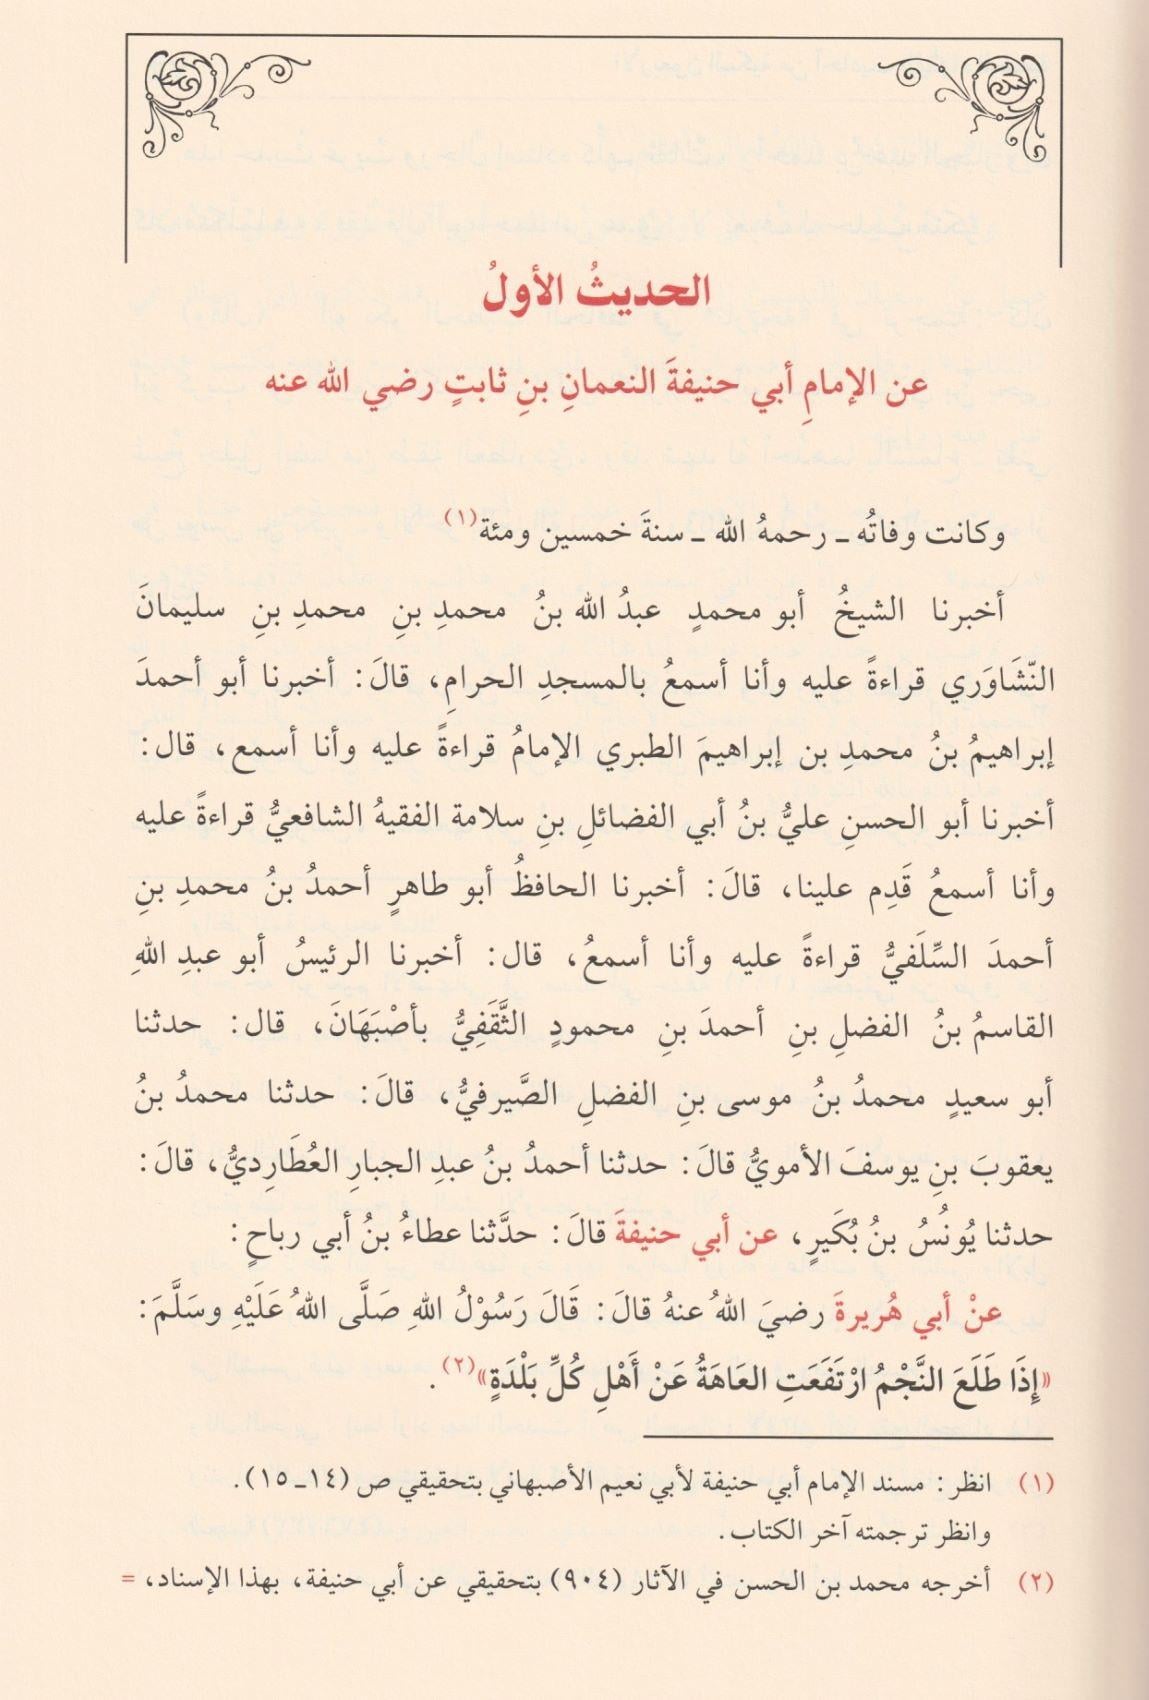 الحديثُ الأولُ
عن الإمامِ أبي حنيفةَ النعمانِ بنِ ثابتٍ رضي الله عنه
وكانت وفاتُه ـ رحمهُ الله ـ سنةَ خمسين ومئة(١)
أخبرنا الشيخُ أبو محمدٍ عبدُ الله بنُ محمدِ بنِ محمدِ بنِ سليمانَ
النّشَاوَري قراءةً عليه وأنا أسمعُ بالمسجدِ الحرامِ، قالَ: أخبرنا أبو أحمدَ
إبراهيمُ بنُ محمدِ بن إبراهيمَ الطبري الإمامُ قراءةً عليه وأنا أسمع، قال:
أخبرنا أبو الحسنِ عليُّ بنُ أبي الفضائلِ بنِ سلامة الفقيهُ الشافعيُّ قراءةً عليه
وأنا أسمعُ قَدِم علينا، قالَ: أخبرنا الحافظُ أبو طاهرٍ أحمدُ بنُ محمدِ بنِ
أحمدَ السِّلَفيُّ قراءةً عليه وأنا أسمعُ، قال: أخبرنا الرئيسُ أبو عبدِ اللهِ
القاسمُ بنُ الفضلِ بنِ أحمدَ بنِ محمودٍ الثَّقَفِيُّ بأصْبَهَانَ، قال: حدثنا
أبو سعيدٍ محمدُ بنُ موسى بنِ الفضلِ الصَّيرفيُّ، قالَ: حدثنا محمدُ بنُ
يعقوبَ بنِ يوسفَ الأمويُّ قالَ: حدثنا أحمدُ بنُ عبدِ الجبارِ العُطَارِديُّ، قالَ:
حدثنا يُونُسُ بنُ بُكَيرٍ، عن أبي حنيفةَ قالَ: حدَّثنا عطاءُ بنُ أبي رباحٍ:
عنْ أبي هُريرةَ رضيَ اللهُ عنهُ قالَ: قَالَ رَسُوْلُ اللهِ صَلَّى اللهُ عَلَيْهِ وسَلَّمَ:
«إِذَا طَلَعَ النَّجْمُ ارْتَفَعَتِ العَاهَةُ عَنْ أَهْلِ كُلِّ بَلْدَةٍ»(٢).
(١) انظر: مسند الإمام أبي حنيفة لأبي نعيم الأصبهاني بتحقيقي ص (١٤ـ١٥).
وانظر ترجمته آخر الكتاب.
(٢) أخرجه محمد بن الحسن في الآثار (٩٠٤) بتحقيقي عن أبي حنيفة، بهذا الإسناد، =